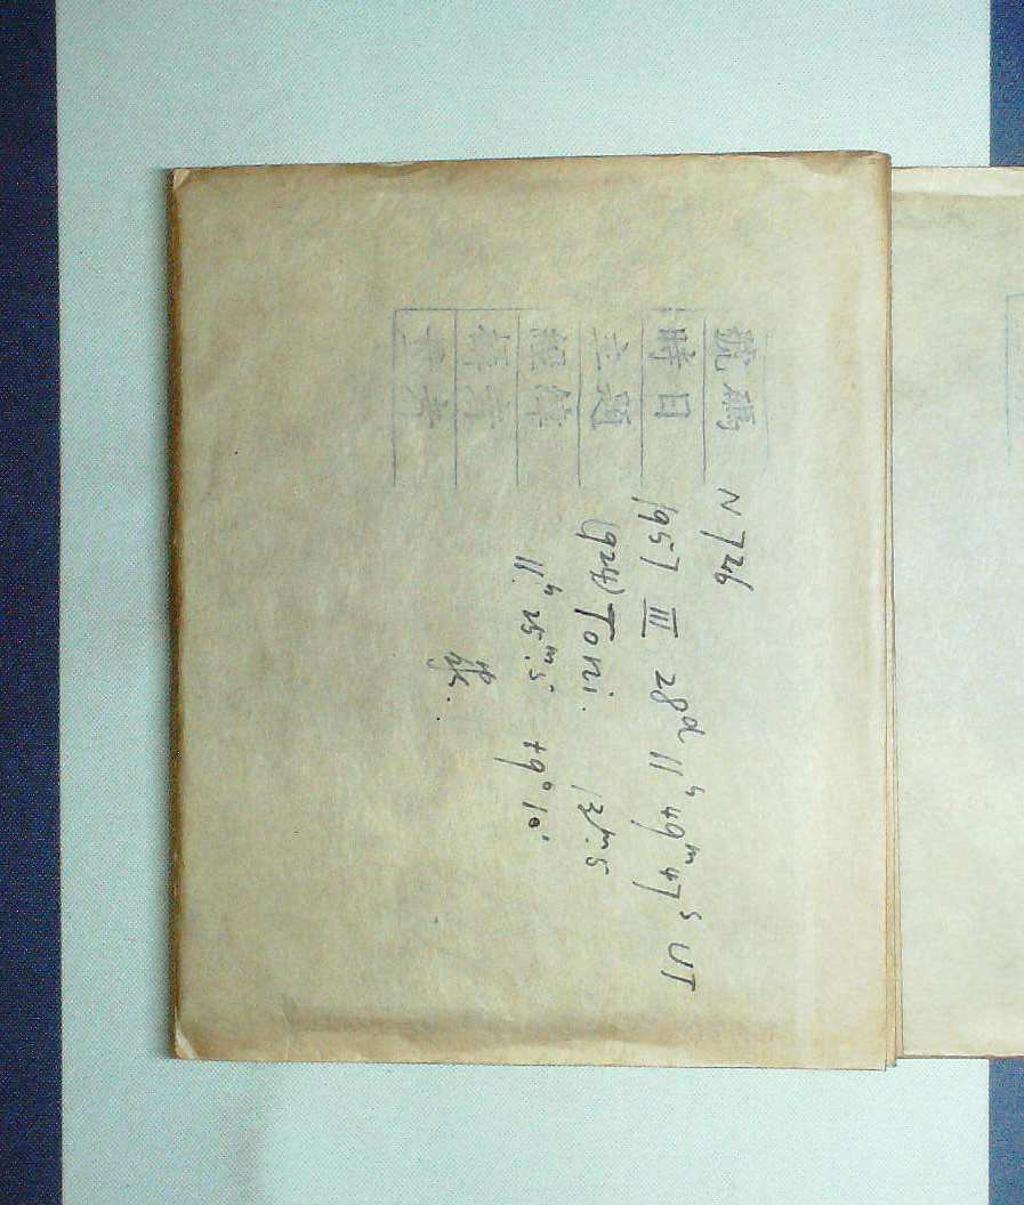 號碼 N 726
時日 1957 III 28d 11h 49m 47s UT
主題 (924) Toni. 13m.5
經緯 11h 25m.5 +9° 10'
張.